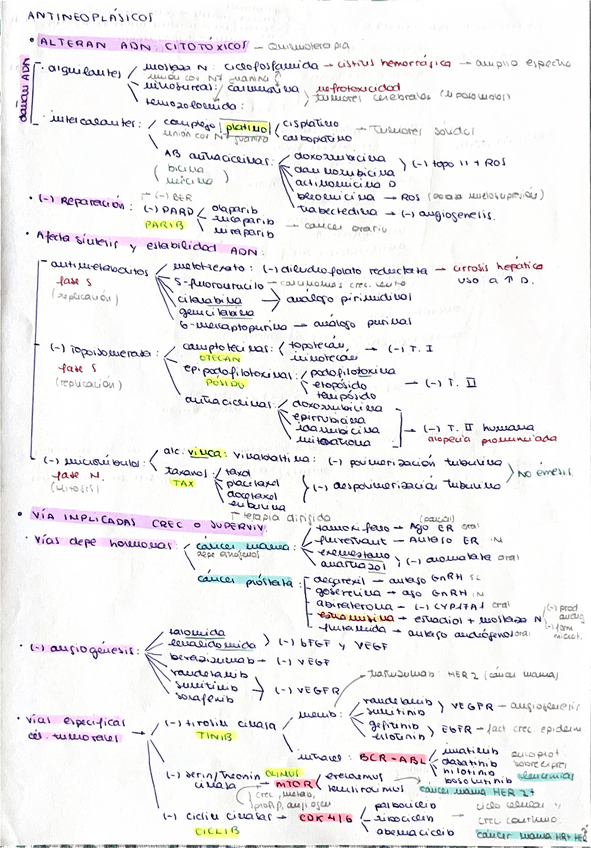 ANTINEOPLÁSICOS
• ALTERAN ADN: CITOTÓXICOS — Quimioterapia
dañan ADN
· alquilantes
mostaza N: ciclofosfamida → cistitis hemorrágica → amplio espectro
unión cov N7 guanina
nitrosureas: carmustina
nefrotoxicidad
tumores cerebrales (liposolubles)
temozolomida:
· intercalantes:
complejo platino
cisplatino
carboplatino
Tumores sólidos
unión cov N7 guanina
AB antraciclinas:
doxorrubicina
daunorrubicina
(-) topo II + ROS
actinomicina D
bleomicina → ROS (poca mielosupresión)
trabectedina → (-) angiogénesis.
· (-) Reparación:
(-) BER
(-) PARP
PARIB
olaparib
rucaparib
niraparib
cáncer ovario
· Afecta síntesis y estabilidad ADN:
antimetabolitos
fase S
(replicación)
metotrexato: (-) dihidrofolato reductasa → cirrosis hepática
uso a ↑ D.
5-fluorouracilo — carcinomas crec. lento
citarabina
gemcitabina
análogo pirimidinas
6-mercaptopurina → análogo purinas
(-) Topoisomerasa:
fase S
(replicación)
camptotecinas:
OTECAN
topotecán
irinotecan
→ (-) T. I
epipodofilotoxinas:
PÓSIDO
podofilotoxina
etopósido
tenipósido
→ (-) T. II
antraciclinas
doxorrubicina
epirrubicina
idarrubicina
mitoxantrona
→ (-) T. II humana
alopecia pronunciada
(-) microtúbulos:
fase M.
(mitosis)
alc. vinca: vinblastina: (-) polimerización tubulina
taxanos
TAX
taxol
paclitaxel
docetaxel
eribulina
(-) despolimerización tubulina
NO émesis
Terapia dirigida
• VÍA IMPLICADAS CREC O SUPERVIV
· Vías depe hormonas:
cáncer mama:
depe estrógenos
tamoxifeno → Ago ER oral
(parcial)
fulvestrant → Antago ER IN
exemestano
anastrazol
(-) aromatasa oral
cáncer próstata:
degarelix → antago GnRH SC
goserelina → ago GnRH IN
abiraterona → (-) CYP17A1 oral
estramustina → estradiol + mostaza N
flutamida → antago andrógenos oral
· (-) angiogénesis:
talidomida
lenalidomida
(-) bFGF y VEGF
bevacizumab → (-) VEGF
vandetanib
sunitinib
sorafenib
(-) VEGFR
trastuzumab: HER2 (cáncer mama)
· vías específicas
cél. tumorales
(-) tirosin cinasa
TINIB
memb:
vandetanib
sunitinib
VEGFR → angiogénesis
gefitinib
erlotinib
EGFR → fact crec epiderm
intrac: BCR-ABL
imatinib
dasatinib
nilotinib
bosutinib
leucemias
(-) serin/treonin
cinasa
OLIMUS
mTOR
crec, metab,
prolif, angiogen
everolimus
temsirolimus
cáncer mama HER 2+
(-) ciclin cinasas → CDK 4/6
CICLIB
palbociclib
ribociclib
abemaciclib
ciclo celular y
crec continuo.
cáncer mama HR+ HER2